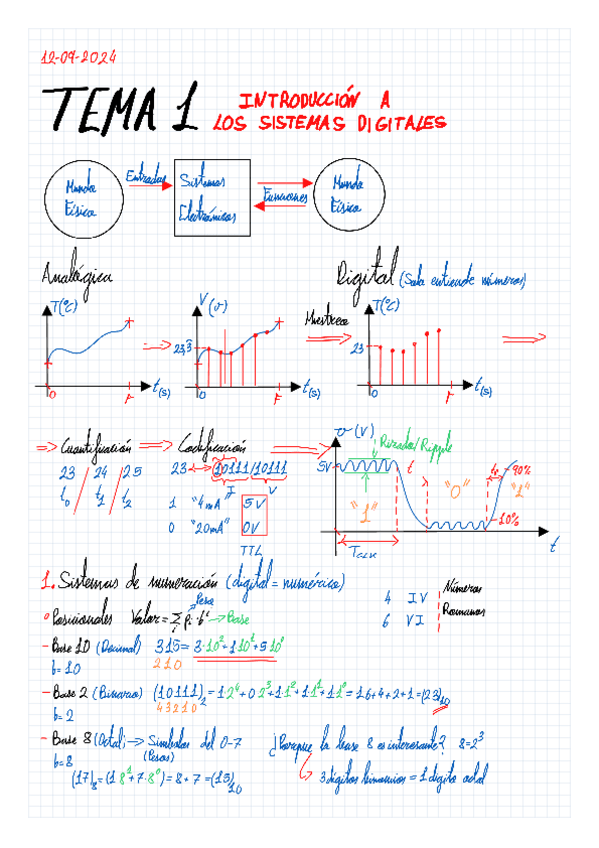 12-09-2024
TEMA 1 INTRODUCCIÓN A
LOS SISTEMAS DIGITALES
Mundo Físico
Entradas
Sistemas Electrónicos
Funciones
Mundo Físico
Analógica
Digital (Solo entiende números)
T(ºC)
t(s)
0
F
V(v)
23,3
t(s)
0
F
Muestreo
T(ºC)
23
t(s)
0
F
=> Cuantificación => Codificación
23 / 24 / 25
t0 t1 t2
23 <-> 10111/10111
I V
1 "4mA" 5V
0 "20mA" 0V
TTL
v(V)
Rizado/Ripple
5V
t
"1"
"0"
"1"
90%
10%
TCLK
t
1. Sistemas de numeración (digital = numérico)
4 IV
6 VI
Números Romanos
Peso
Posicionales Valor = Σ pi · b^i -> Base
- Base 10 (Decimal) 315 = 3·10²+1·10¹+5·10⁰
b=10
210
- Base 2 (Binario) (10111)₂ = 1·2⁴+0·2³+1·2²+1·2¹+1·2⁰ = 16+4+2+1 = (23)₁₀
b=2
43210
- Base 8 (Octal) -> Simbolos del 0-7
(Pesos)
b=8
¿Porque la base 8 es interesante? 8=2³
(17)₈ = (1·8¹+7·8⁰) = 8+7 = (15)₁₀
3 digitos binarios = 1 digito octal